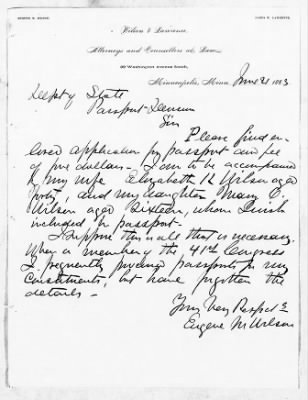 EUGENE M. WILSON. JAMES W. LAWRENCE.
Wilson & Lawrence,
Attorneys and Counsellors at Law,
Washington Avenue South,
Minneapolis, Minn. June 21 1883
Dept of State
Passport Division
Sir
Please find en-
closed application for passport and fee
of five dollars. I am to be accompanied
by my wife Elizabeth K Wilson aged
forty, and my daughter Mary E.
Wilson aged sixteen, whom I wish
included in passport.
I suppose this is all that is necessary.
When a member of the 41st Congress
I frequently procured passports for my
constituents, but have forgotten the
details -
Very Respect
Eugene M Wilson